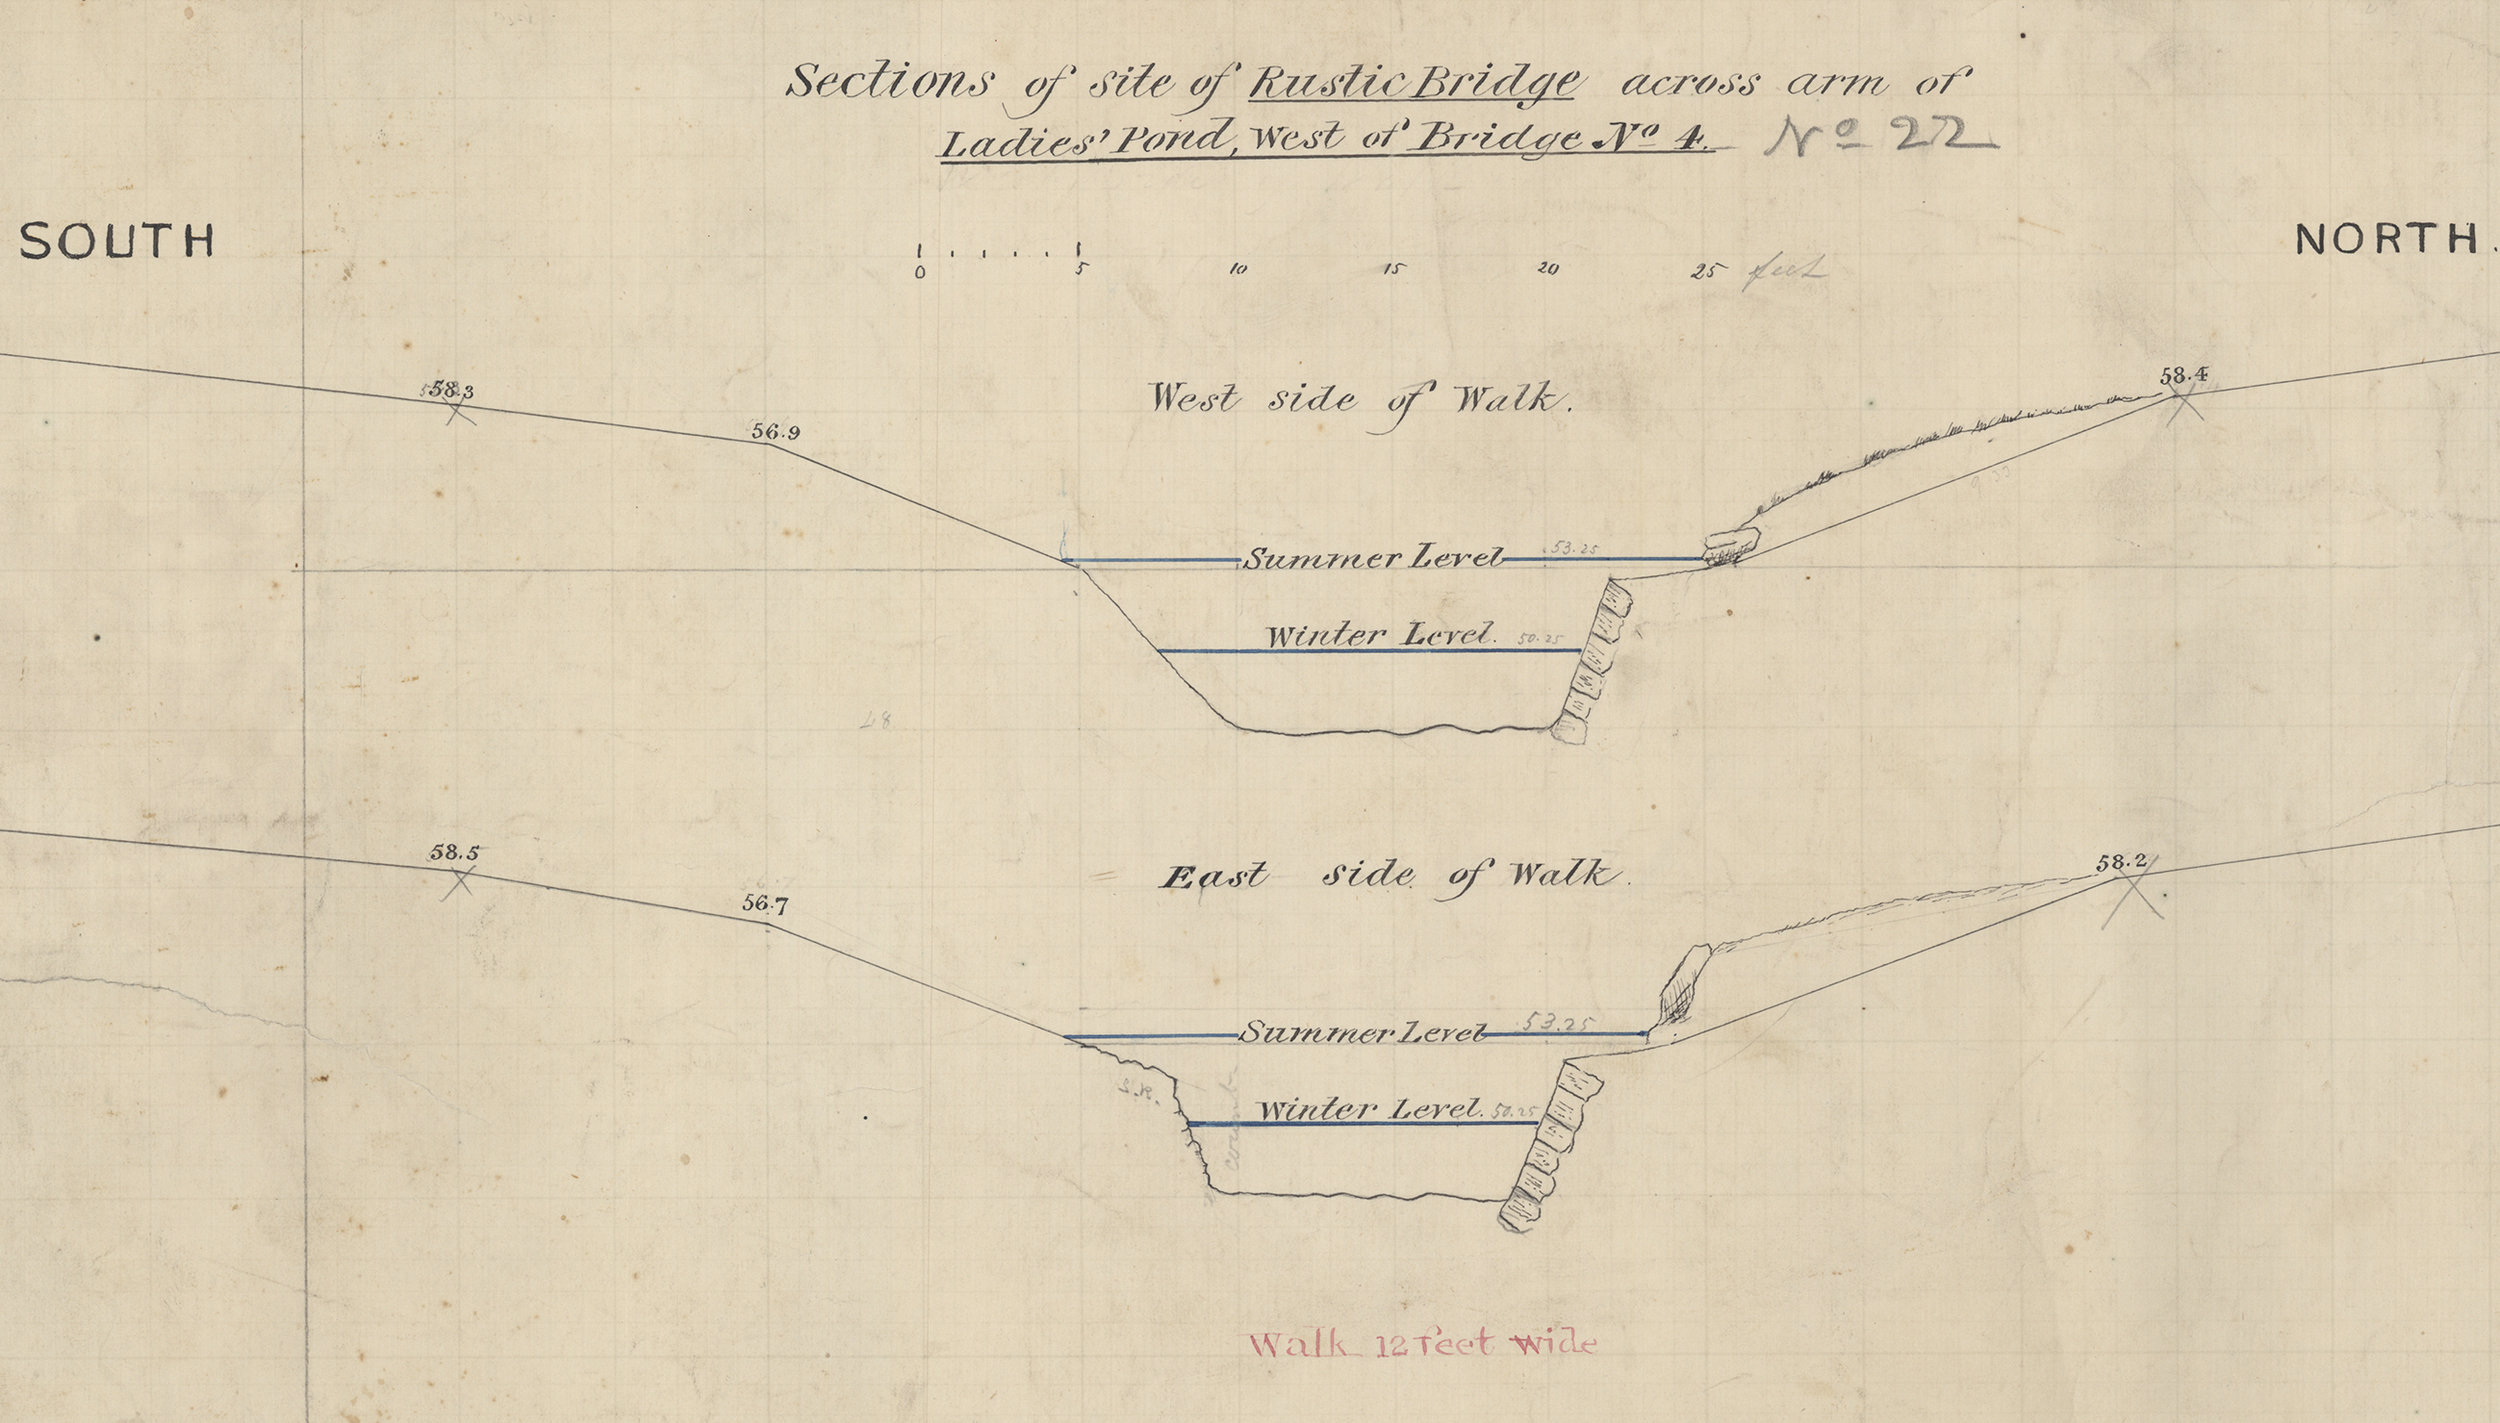 Sections of site of Rustic Bridge across arm of
Ladies' Pond, West of Bridge No 4. No 22
SOUTH
NORTH.
0 5 10 15 20 25 feet
58.3
56.9
West side of Walk.
58.4
Summer Level 53.25
Winter Level. 50.25
48
58.5
56.7
East side of Walk.
58.2
Summer Level 53.25
Winter Level. 50.25
Walk 12 feet wide